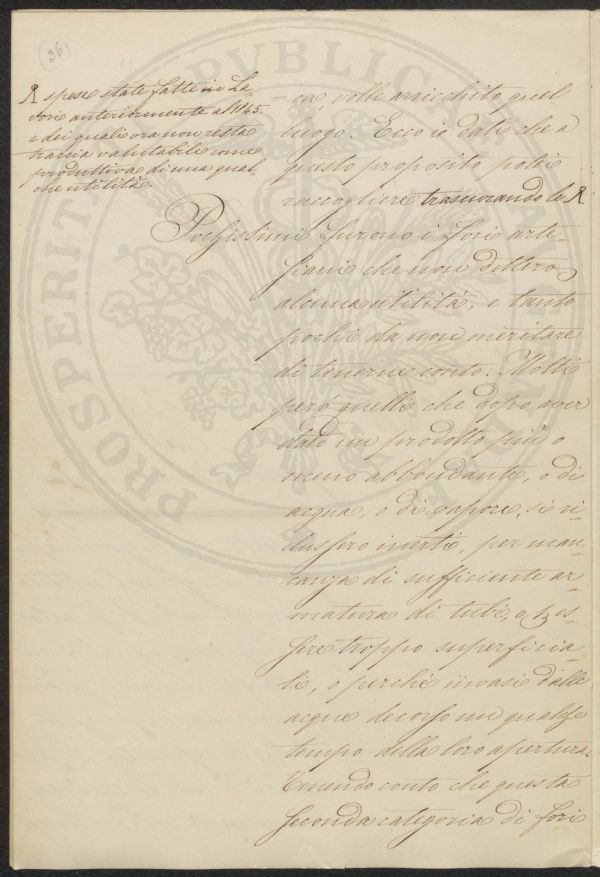 (36)
spese state fatte in La-
vori anteriormente al 1845
e dei quali ora non resta
traccia valutabile come
produttiva di una qual
che utilità.
ca volle arricchito quel
luogo. Ecco i dati che a
questo proposito potei
raccogliere trascurando le
Pochissimi furono i fori arte-
siani che non dettero
alcuna utilità, e tanto
pochi da non meritare
di tenerne conto. Molti
però quelli che dopo aver
dato un prodotto più o
meno abbondante, o di
acqua, o di vapore, si ri-
dussero inerti, per man-
canza di sufficiente ar
matura di tubi, o p es-
sere troppo superficia-
li, o perchè invasi dalle
acque decorso un qualche
tempo della loro apertura.
Tenendo conto che questa
seconda categoria di fori
PROSPERITÀ PVBLICA